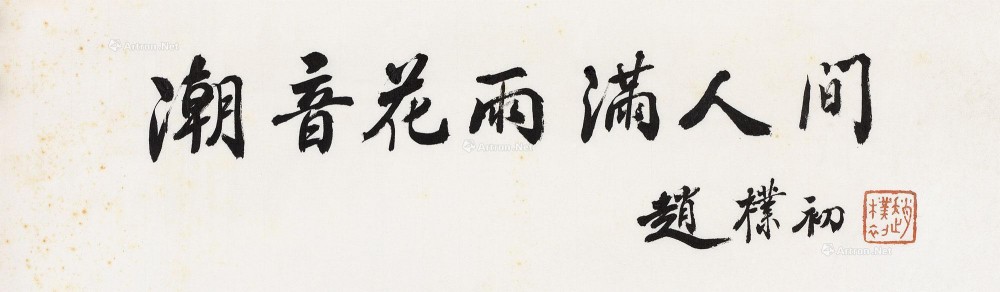 潮音花雨滿人间
趙樸初
趙樸初
Artron.Net
Artron.Net
Artron.Net